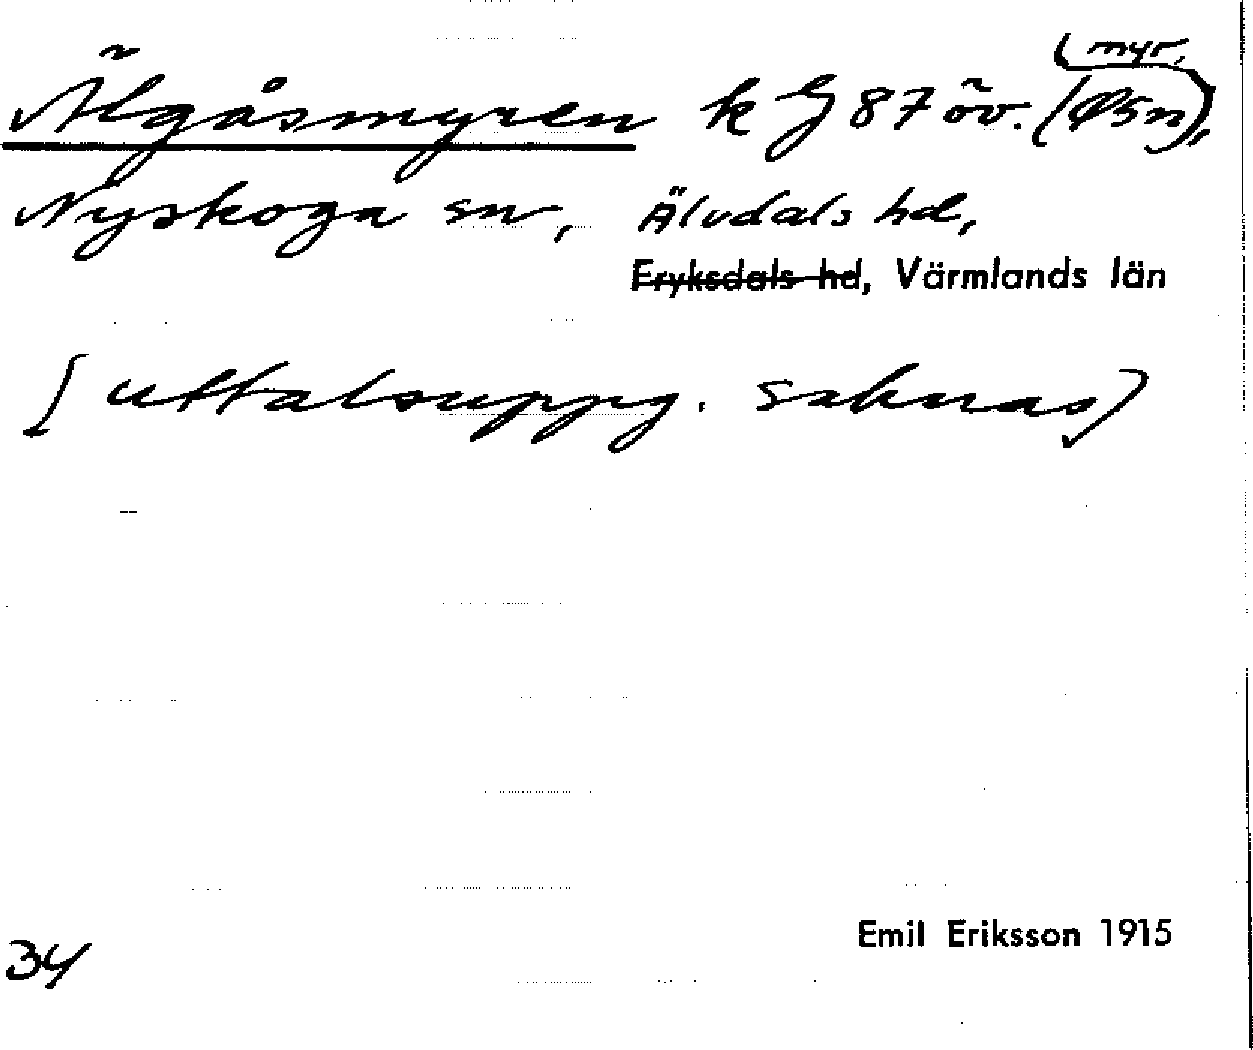 (myr,
Älgåsmyren k G 87 öv. (Ø5n),
Nyskoga sn, Älvdals hd,
Fryksdals hd, Värmlands län
[uttalsuppg. saknas]
Emil Eriksson 1915
34